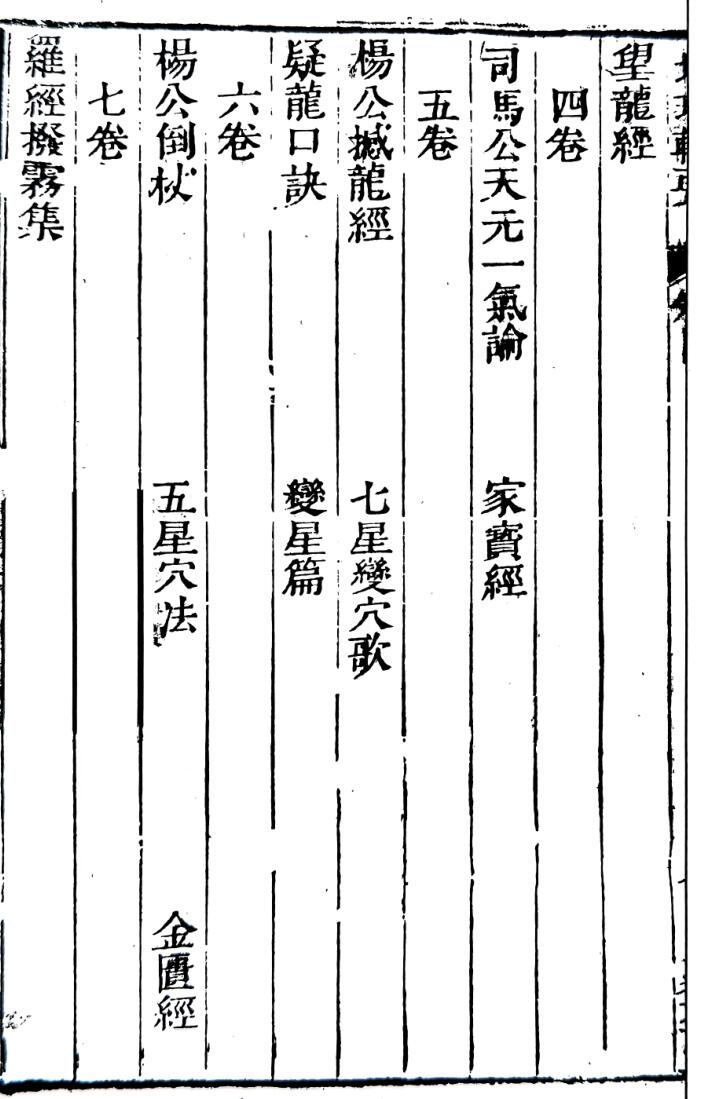 望龍經
四卷
司馬公天元一氣論　家寶經
五卷
楊公撼龍經　七星變穴歌
疑龍口訣　變星篇
六卷
楊公倒杖　五星穴法　金匱經
七卷
羅經撥霧集